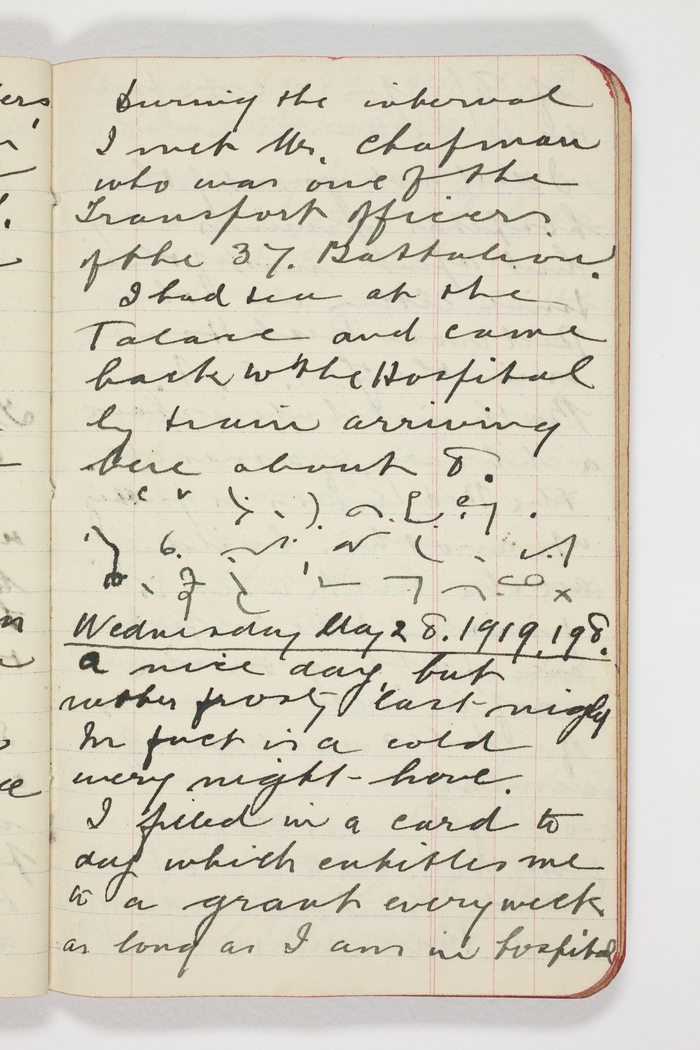 During the interval
I met Mr. Chapman
who was one of the
Transport officers
of the 37. Battalion.
I had tea at the
and came
back to the Hospital
by train arriving
here about 8.
Wednesday May 28. 1919. 198.
a nice day, but
rather frosty last night
In fact is a cold
every night here.
I filled in a card to
day which entitles me
to a grant every week
as long as I am in hospital